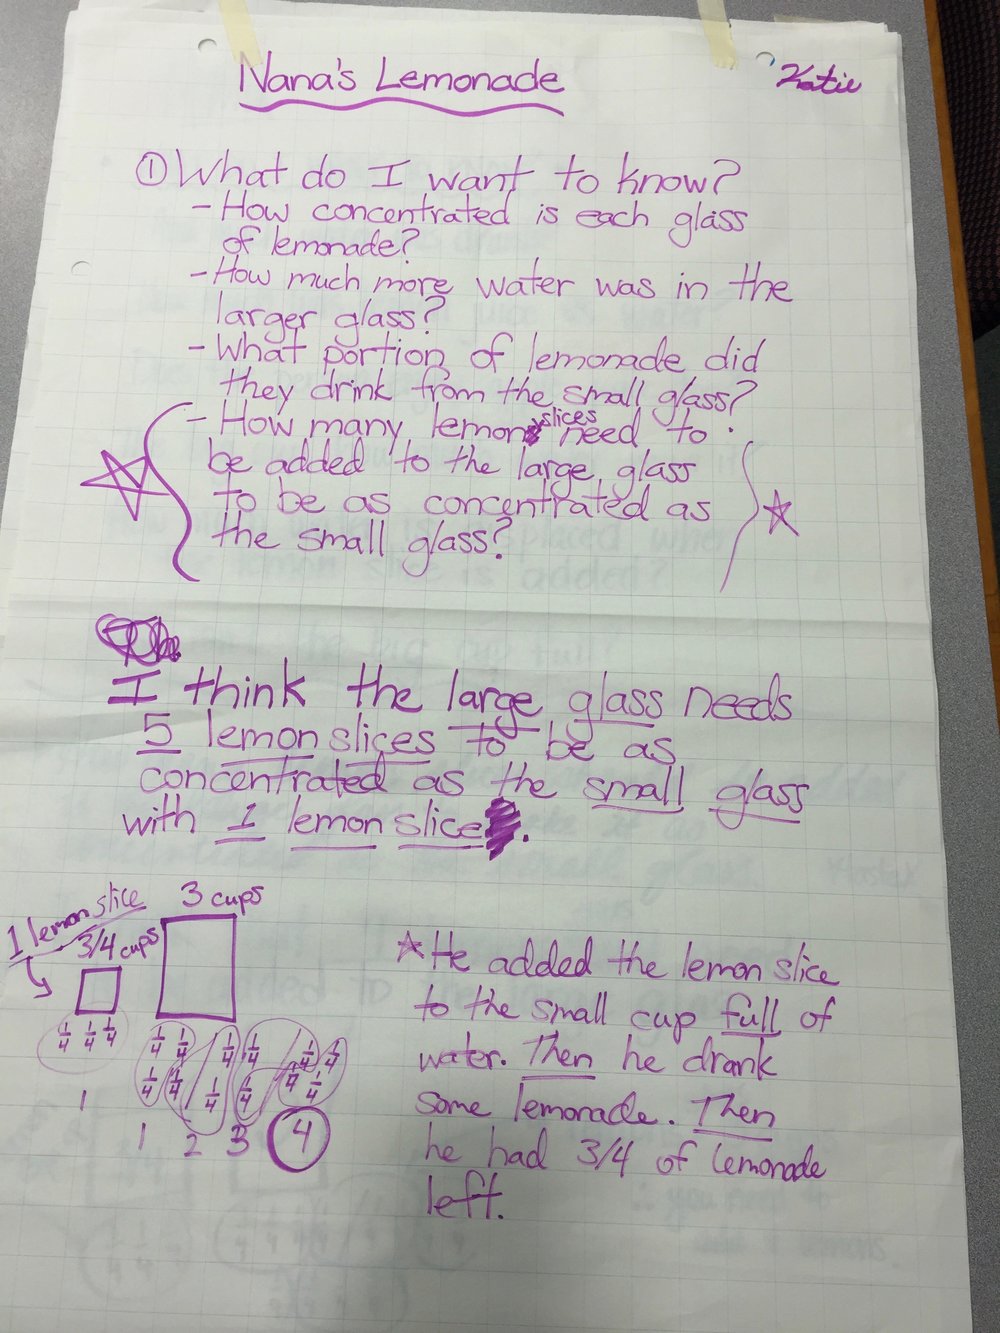 Nana's Lemonade
Katie
① What do I want to know?
- How concentrated is each glass
of lemonade?
- How much more water was in the
larger glass?
- What portion of lemonade did
they drink from the small glass?
- How many lemon slices need to
be added to the large glass
to be as concentrated as
the small glass?
I think the large glass needs
5 lemon slices to be as
concentrated as the small glass
with 1 lemon slice.
1 lemon slice
3/4 cups
3 cups
1/4 1/4 1/4
1
1/4 1/4 1/4 1/4 1/4 1/4
1/4 1/4 1/4 1/4 1/4 1/4
1 2 3 4
* He added the lemon slice
to the small cup full of
water. Then he drank
some lemonade. Then
he had 3/4 of lemonade
left.